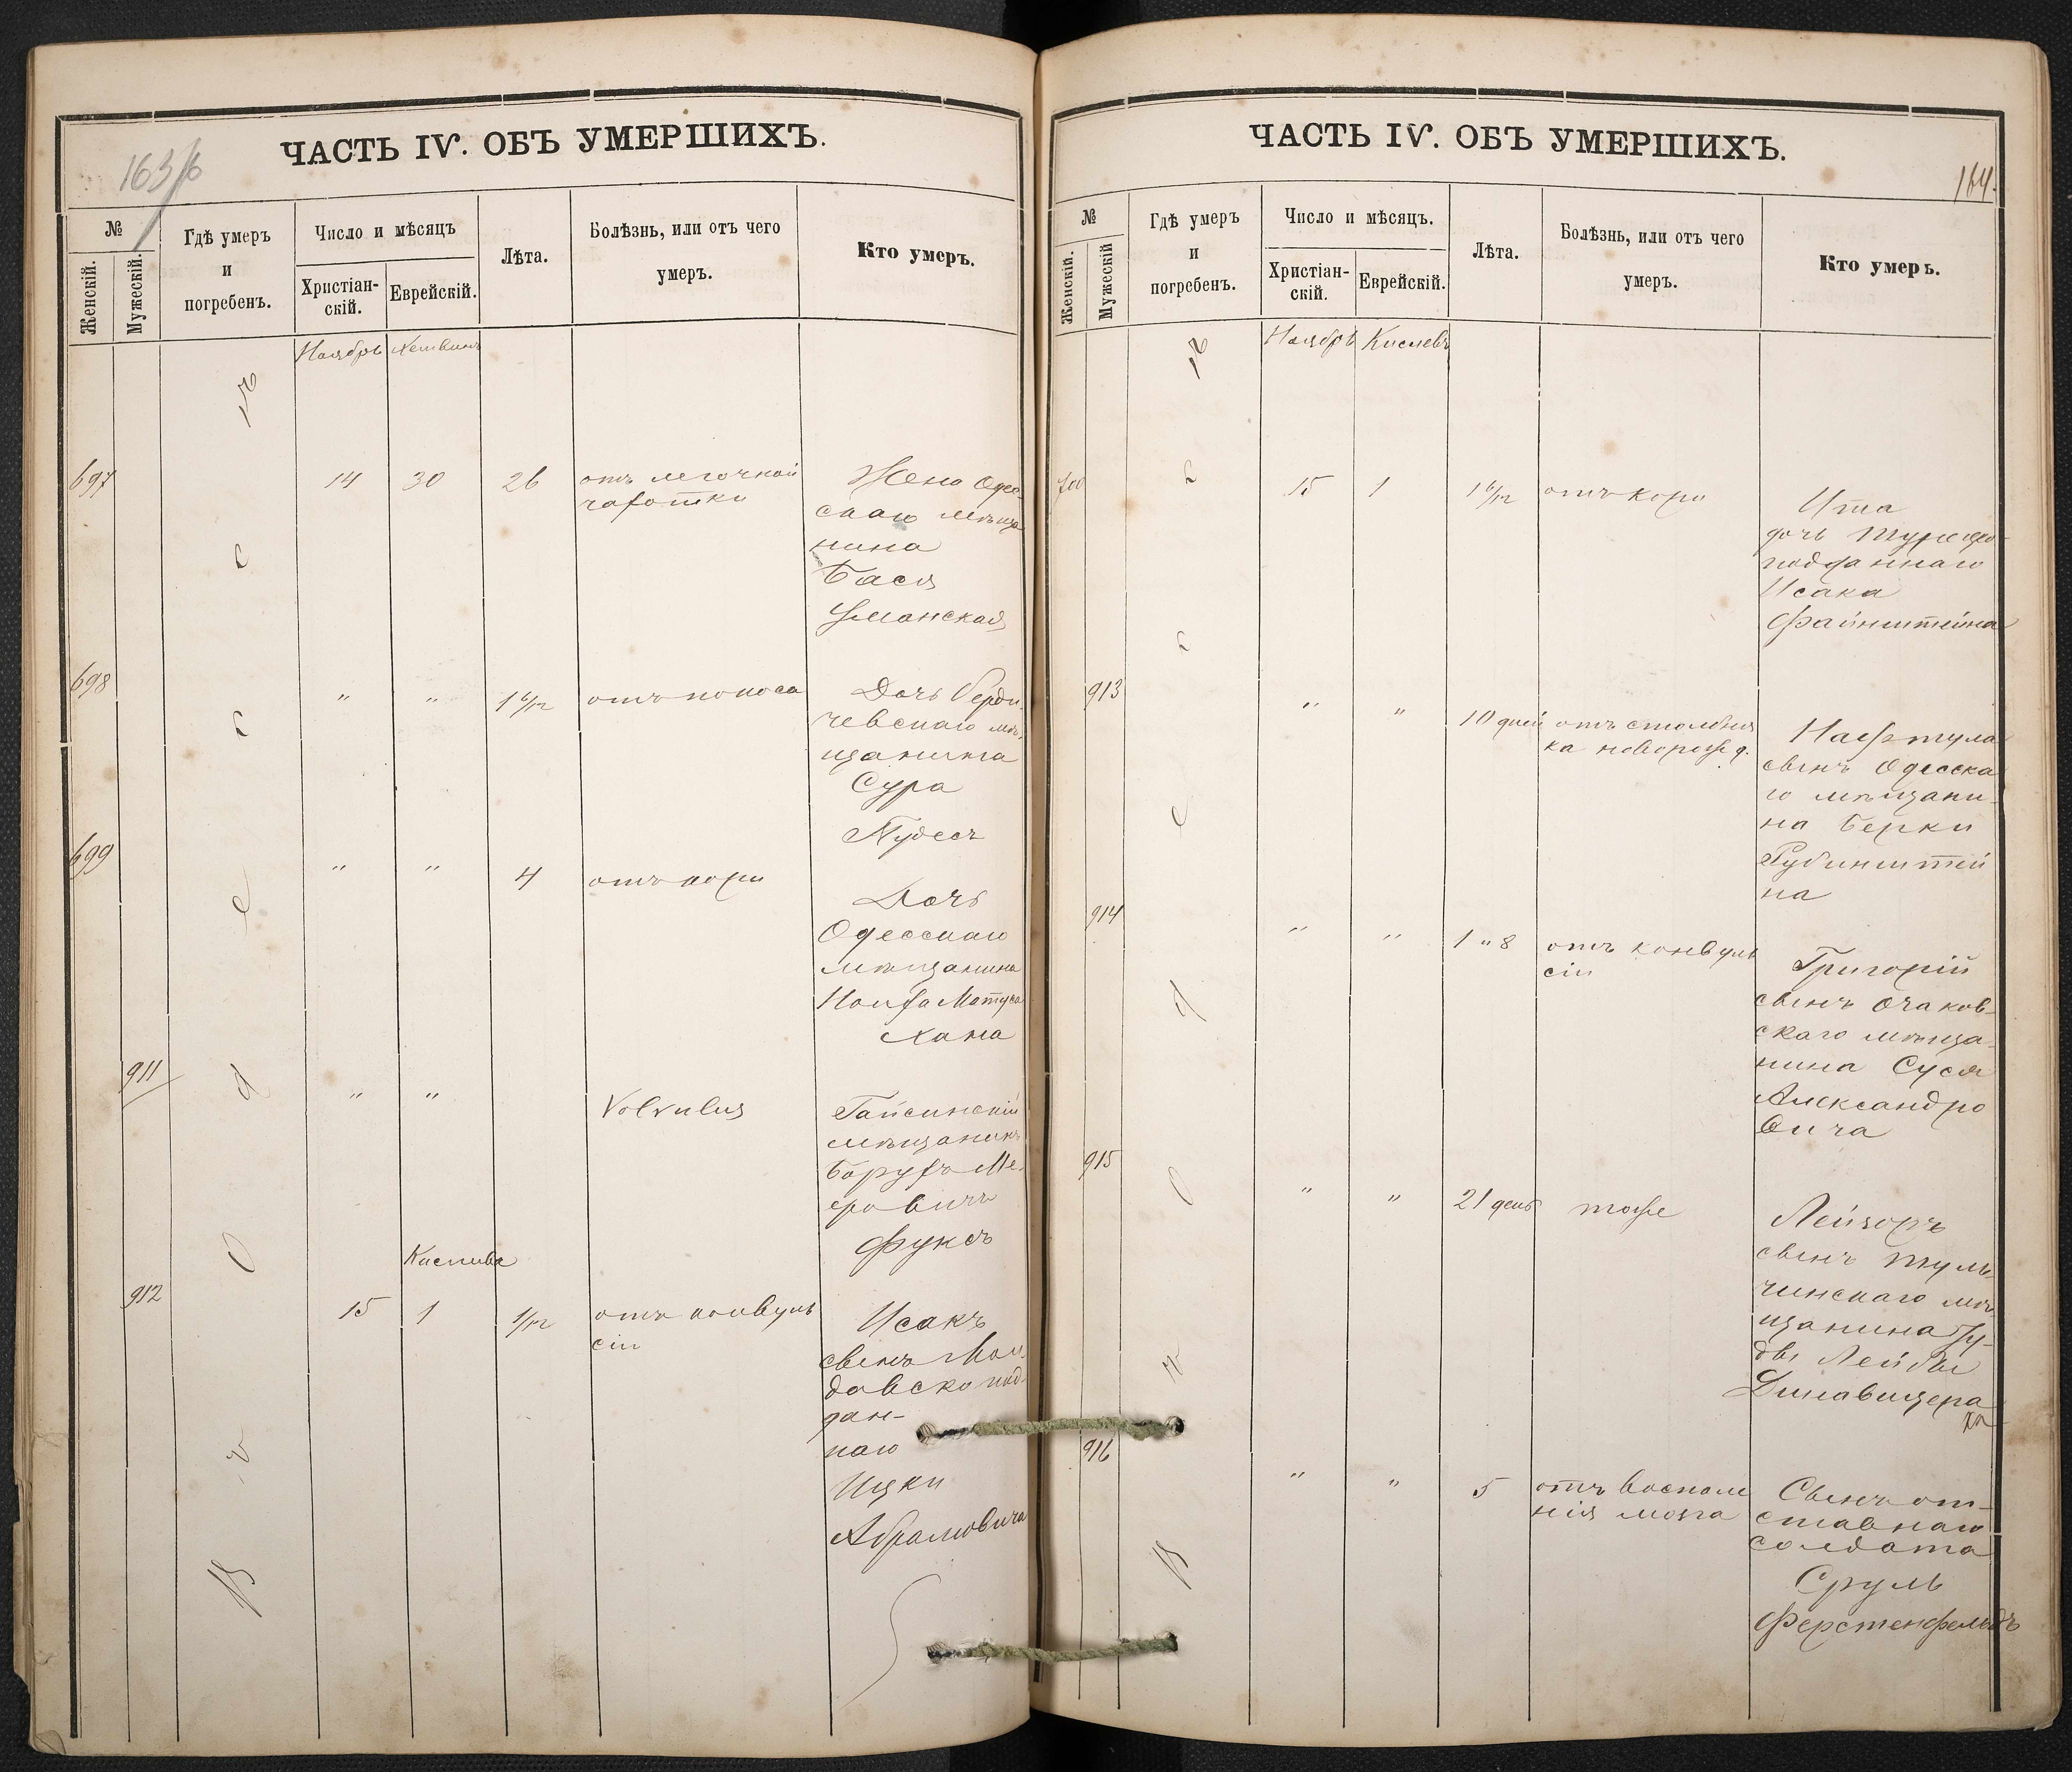 ЧАСТЬ IV. ОБЪ УМЕРШИХЪ.
163/б
№
Женскій.
Мужескій.
Гдѣ умеръ
и
погребенъ.
Число и мѣсяцъ
Христіан-
скій.
Еврейскій.
Лѣта.
Болѣзнь, или отъ чего
умеръ.
Кто умеръ.
Ноябрь Хешванъ
въ Одессѣ
697 14 30 26 отъ легочной
чахотки
Жена Одес-
скаго мѣща
нина
Бася
Уманская
698 " " 1 6/12 отъ поноса
Дочь Берди-
чевскаго мѣ-
щанина
Сура
Пудесъ
699 " " 4 отъ кори
Дочь
Одесскаго
мѣщанина
Иойфа Матуса
Хана
911 " " Volvulus
Гайсинскій
мѣщанинъ
Борухъ Ме-
еровичъ
Фуксъ
Кислевъ
912 15 1 1/12 отъ конвуль
сіи
Исакъ
сынъ Мол-
давско под-
дан-
наго
Ицки
Абрамовича
ЧАСТЬ IV. ОБЪ УМЕРШИХЪ.
164.
№
Женскій.
Мужескій
Гдѣ умеръ
и
погребенъ.
Число и мѣсяцъ.
Христіан-
скій.
Еврейскій.
Лѣта.
Болѣзнь, или отъ чего
умеръ.
Кто умеръ.
Ноябрь Кислевъ
въ Одессѣ
700 15 1 1 6/12 отъ кори
Ита
дочь Турецко-
подданнаго
Исака
Файнштейна
913 " " 10 дней отъ столбня
ка поворожд.
Нафтула
сынъ Одесска
го мѣщани-
на Берки
Рубинштей
на
914 " " 1 " 8 отъ конвуль
сіи
Григорій
сынъ Очаков-
скаго мѣща-
нина Суся
Александро
вича
915 " " 21 день тоже
Лейзоръ
сынъ Туль-
чинскаго мѣ-
щанина Іу-
ды Лейбы
Динавицера
916 " " 5 отъ воспале
нія мозга
Сынъ от-
ставнаго
солдата
Сруль
Ферстенфельдъ